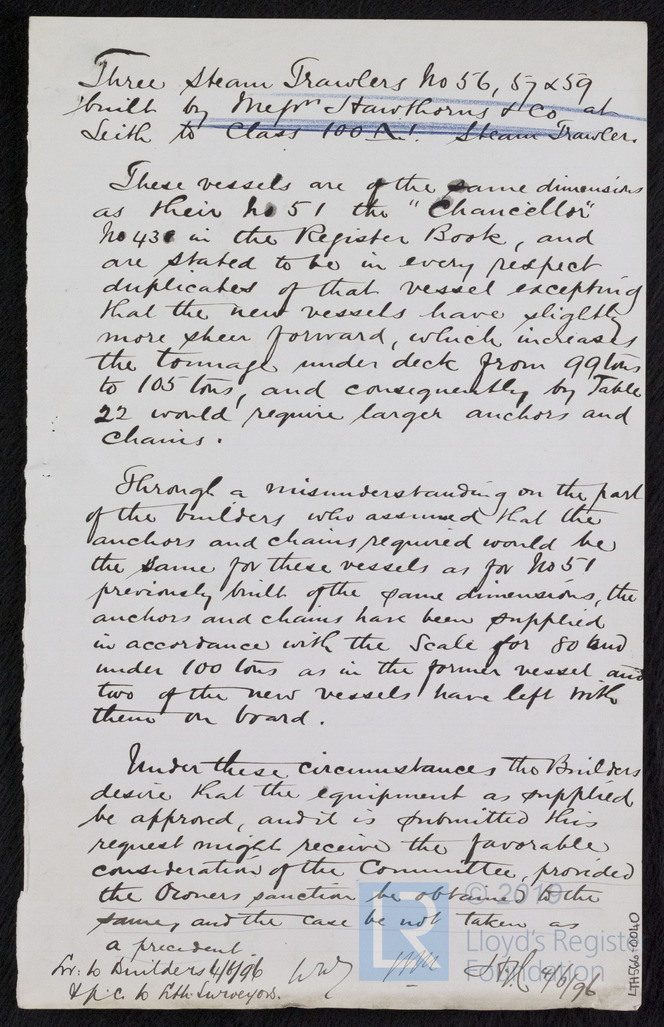 Three Steam Trawlers No 56, 57 & 59
built by Messrs Hawthorns & Co at
Leith to Class 100 A1. Steam Trawler.
These vessels are of the same dimensions
as their No 51 the "Chancellor"
No 43 in the Register Book, and
are stated to be in every respect
duplicates of that vessel excepting
that the new vessels have slightly
more sheer forward, which increases
the tonnage under deck from 99 tons
to 105 tons, and consequently by Table
22 would require larger anchors and
chains.
Through a misunderstanding on the part
of the builders who assumed that the
anchors and chains required would be
the same for these vessels as for No 51
previously built of the same dimensions, the
anchors and chains have been supplied
in accordance with the Scale for 80 and
under 100 tons as in the former vessel and
two of the new vessels have left with
them on board.
Under these circumstances the Builders
desire that the equipment as supplied
be approved, and it is submitted this
request might receive the favorable
consideration of the Committee, provided
the Owners sanction be obtained to the
same, and the case be not taken as
a precedent.
Lr. to Builders 4/6/96
& p.c. to Lth. Surveyors.
4/6/96
© 2019
LR
Lloyd's Register
Foundation
LTH566-0040